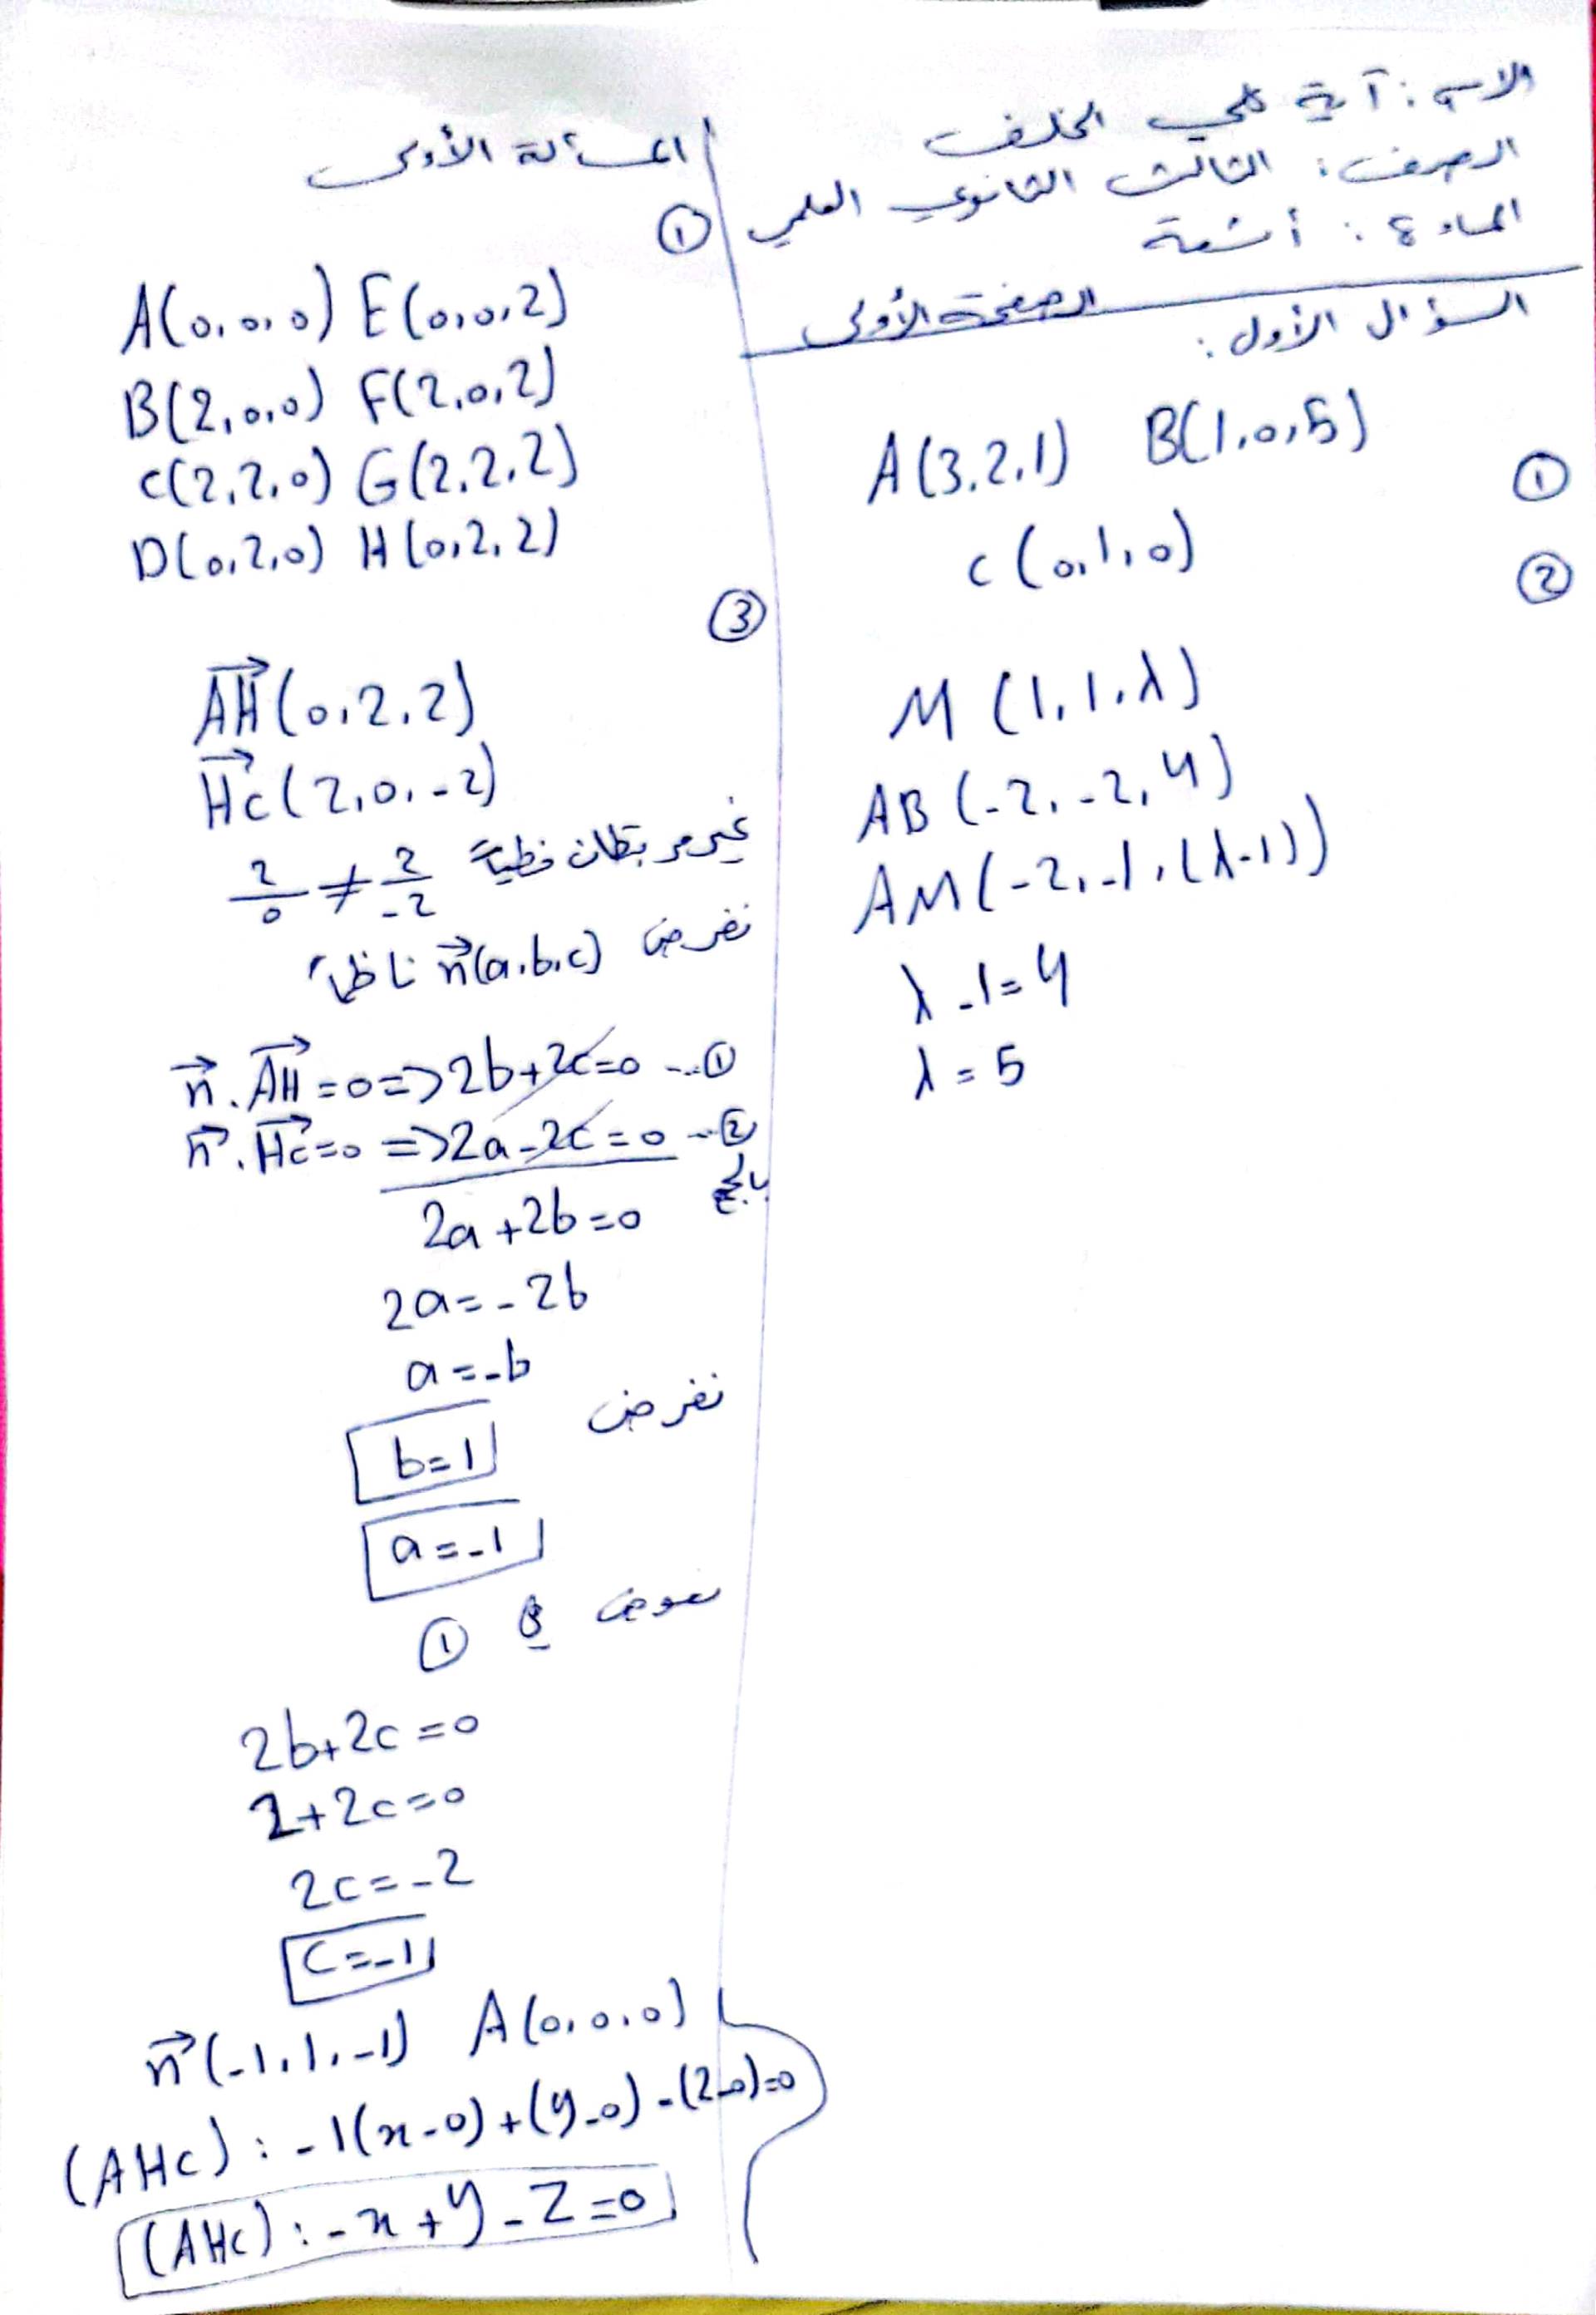 الاسم: آية علي الخلف
الصف: الثالث الثانوي العلمي
المادة: أشعة
الصفحة الأولى
السؤال الأول:
A(3,2,1) B(1,0,5)
①
C(0,1,0)
②
M(1,1,λ)
AB(-2,-2,4)
AM(-2,-1,(λ-1))
λ-1=4
λ=5
المسألة الأولى
①
A(0,0,0) E(0,0,2)
B(2,0,0) F(2,0,2)
C(2,2,0) G(2,2,2)
D(0,2,0) H(0,2,2)
③
AH→(0,2,2)
HC→(2,0,-2)
غير مرتبطان خطياً 2/0 ≠ 2/-2
نفرض n→(a,b,c) ناظماً
n→.AH→=0=>2b+2c=0 ...①
n→.HC→=0=>2a-2c=0 ...②
بالجمع
2a+2b=0
2a=-2b
a=-b
نفرض
b=1
a=-1
نعوض في ①
2b+2c=0
2+2c=0
2c=-2
c=-1
n→(-1,1,-1) A(0,0,0)
(AHC): -1(x-0)+(y-0)-(z-0)=0
(AHC): -x+y-z=0